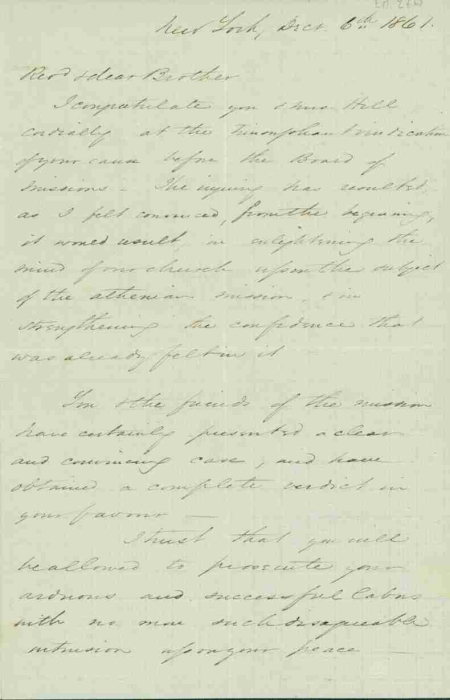 New York, Decr. 6th 1861.
Revd & dear Brother
I congratulate you & Mrs Hill
cordially at the triumphant vindication
of your cause before the Board of
Missions - The inquiry has resulted,
as I felt convinced, from the beginning,
it would result, in enlightening the
mind of our church upon the subject
of the Athenian mission, & in
strengthening the confidence that
was already felt in it
You & the friends of the mission
have certainly presented a clear
and convincing case, and have
obtained a complete verdict in
your favour -
I trust that you will
be allowed to prosecute your
arduous and successful labors
with no more such disagreeable
intrusion upon your peace